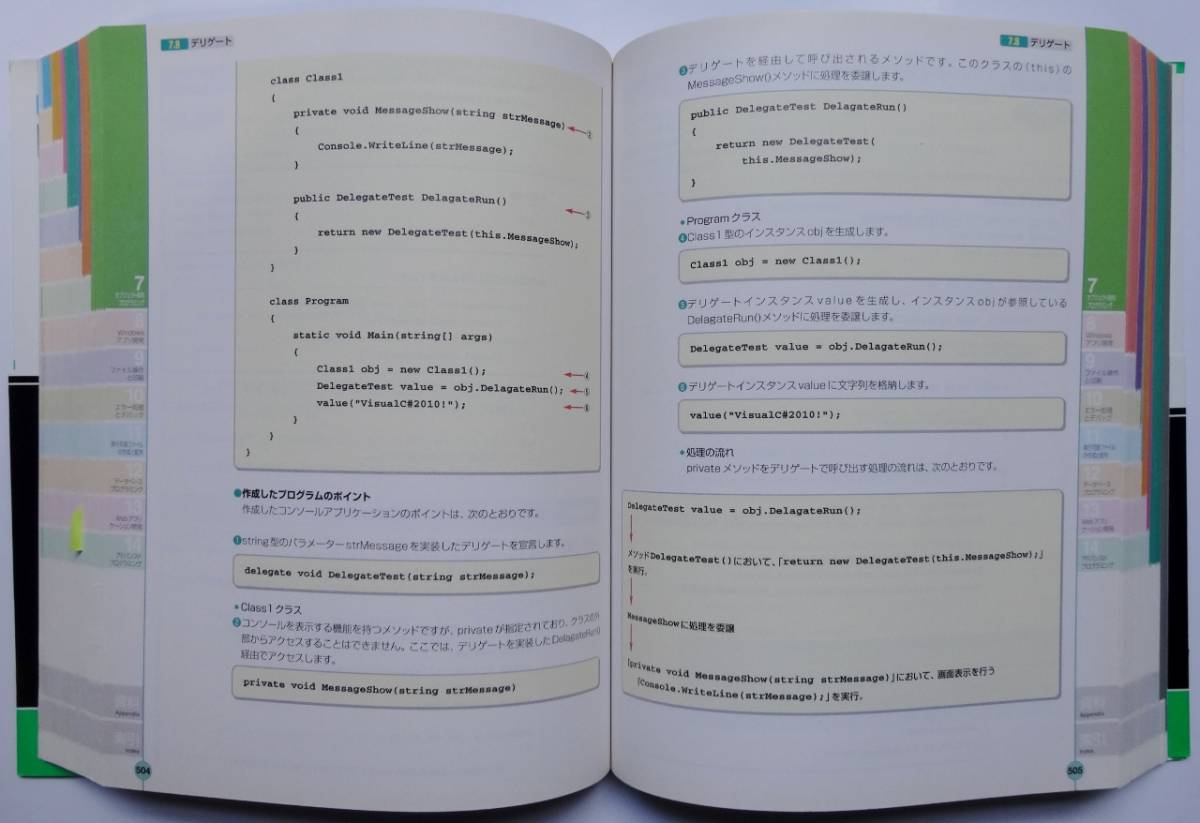 7.8 デリゲート
class Class1
{
private void MessageShow(string strMessage) ②
{
Console.WriteLine(strMessage);
}
public DelegateTest DelagateRun() ③
{
return new DelegateTest(this.MessageShow);
}
}
class Program
{
static void Main(string[] args)
{
Class1 obj = new Class1(); ④
DelegateTest value = obj.DelagateRun(); ⑤
value("VisualC#2010!"); ⑥
}
}
}
●作成したプログラムのポイント
作成したコンソールアプリケーションのポイントは、次のとおりです。
❶string型のパラメーターstrMessageを実装したデリゲートを宣言します。
delegate void DelegateTest(string strMessage);
•Class1クラス
❷コンソールを表示する機能を持つメソッドですが、privateが指定されており、クラスの外
部からアクセスすることはできません。ここでは、デリゲートを実装したDelagateRun()
経由でアクセスします。
private void MessageShow(string strMessage)
7
オブジェクト指向
プログラミング
8
Windows
アプリ開発
9
ファイル操作
と印刷
10
エラー処理
とデバッグ
11
12
データベース
プログラミング
13
Webアプリ
ケーション開発
14
アドバンスド
プログラミング
資料
Appendix
索引
Index
504
7.8 デリゲート
❸デリゲートを経由して呼び出されるメソッドです。このクラスの(this)の
MessageShow()メソッドに処理を委譲します。
public DelegateTest DelagateRun()
{
return new DelegateTest(
this.MessageShow);
}
•Programクラス
❹Class1型のインスタンスobjを生成します。
Class1 obj = new Class1();
❺デリゲートインスタンスvalueを生成し、インスタンスobjが参照している
DelagateRun()メソッドに処理を委譲します。
DelegateTest value = obj.DelagateRun();
❻デリゲートインスタンスvalueに文字列を格納します。
value("VisualC#2010!");
•処理の流れ
privateメソッドをデリゲートで呼び出す処理の流れは、次のとおりです。
DelegateTest value = obj.DelagateRun();
メソッドDelegateTest()において、「return new DelegateTest(this.MessageShow);」
を実行。
MessageShowに処理を委譲
「private void MessageShow(string strMessage)」において、画面表示を行う
「Console.WriteLine(strMessage);」を実行。
7
オブジェクト指向
プログラミング
8
Windows
アプリ開発
9
ファイル操作
と印刷
10
エラー処理
とデバッグ
11
12
データベース
プログラミング
13
Webアプリ
ケーション開発
14
アドバンスド
プログラミング
資料
Appendix
索引
Index
505